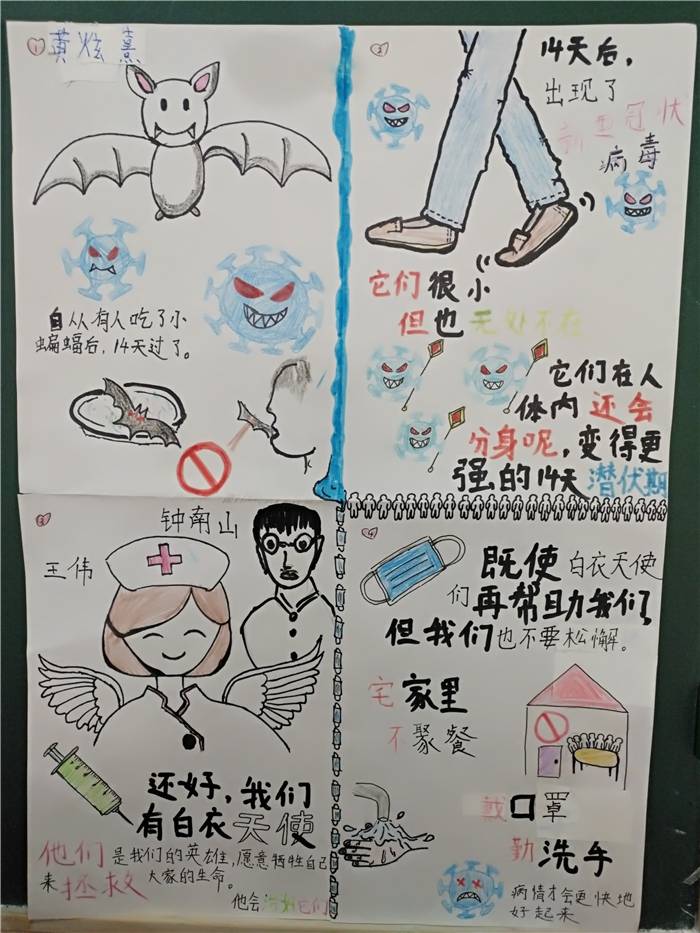 1
黄炫熹
自从有人吃了小
蝙蝠后，14天过了。
2
14天后，
出现了
新型冠状
病毒
它们很小
但也无处不在
它们在人
体内还会
分身呢，变得更
强的14天潜伏期
3
钟南山
王伟
还好，我们
有白衣天使
他们是我们的英雄，愿意牺牲自己
来拯救大家的生命。
他会治好它们
4
既使白衣天使
们再帮助我们
但我们也不要松懈。
宅家里
不聚餐
戴口罩
勤洗手
病情才会更快地
好起来